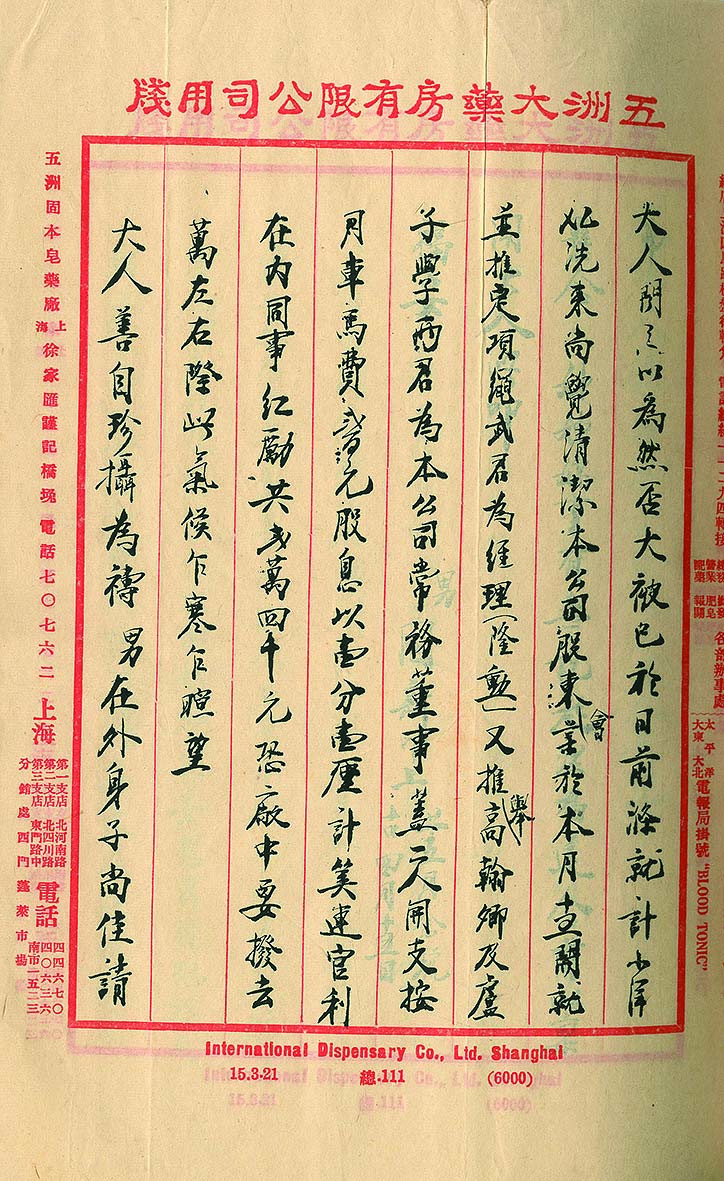 五洲大藥房有限公司用牋
各部辦事處
太平洋
大東 大北
電報局掛號 "BLOOD TONIC"
大人聞之以為然否大被已於日前滌就計
洗來尚覺清潔本公司股東會業於本月開就
並推定項繩武君為經理(隆勳)又推舉高翰卿及盧
子學兩君為本公司常務董事蓋二人開支按
月車馬費元股息以壹分壹厘計算連官利
在內同事紅勵共弍萬四千元恐廠中要撥去
萬左右際此氣候乍寒乍暖望
大人善自珍攝為禱男在外身子尚佳請
五洲固本皂藥廠 上海 徐家匯謹記橋堍 電話七〇七六二
上海
第一支店 北河南路
第二支店 北四川路
第三支店 東門路中
分銷處 西門蓬萊市場
電話
四四六七〇
四〇六三六
南市一五二三
International Dispensary Co., Ltd. Shanghai
15.3.21 總.111 (6000)